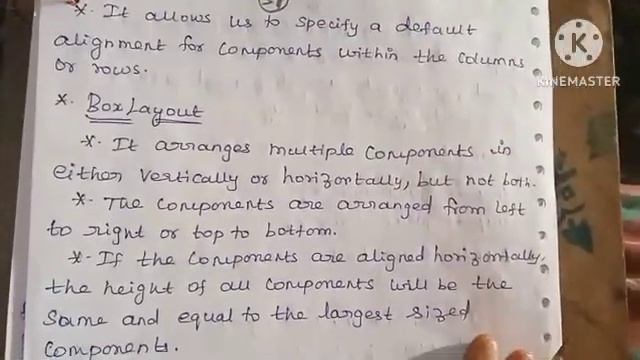 *. It allows us to specify a default
alignment for components within the columns
or rows.
*. Box Layout
*. It arranges multiple components in
either vertically or horizontally, but not both.
*. The components are arranged from left
to right or top to bottom.
*. If the components are aligned horizontally,
the height of all components will be the
same and equal to the largest sized
components.
KINEMASTER